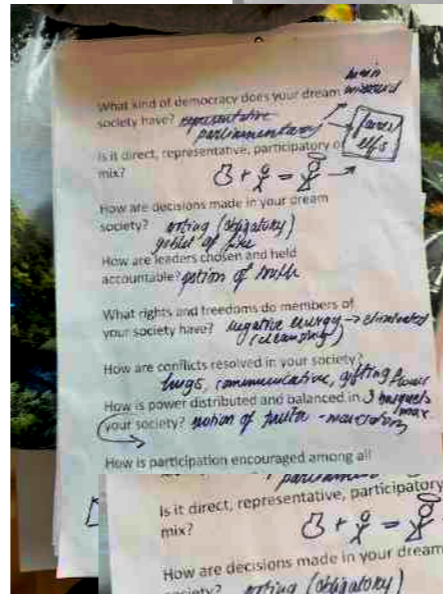 What kind of democracy does your dream
society have? representative
parliamentary
elfs
Is it direct, representative, participatory o
mix?
How are decisions made in your dream
society? voting (obligatory)
goblet of fire
How are leaders chosen and held
accountable? potion of truth
What rights and freedoms do members of
your society have? negative energy → eliminated
(cleansing)
How are conflicts resolved in your society?
hugs, communicative, gifting flower
How is power distributed and balanced in 3
your society? potion of truth - mandatory
max.
How is participation encouraged among all
Is it direct, representative, participatory
mix?
How are decisions made in your dream
society? voting (obligatory)